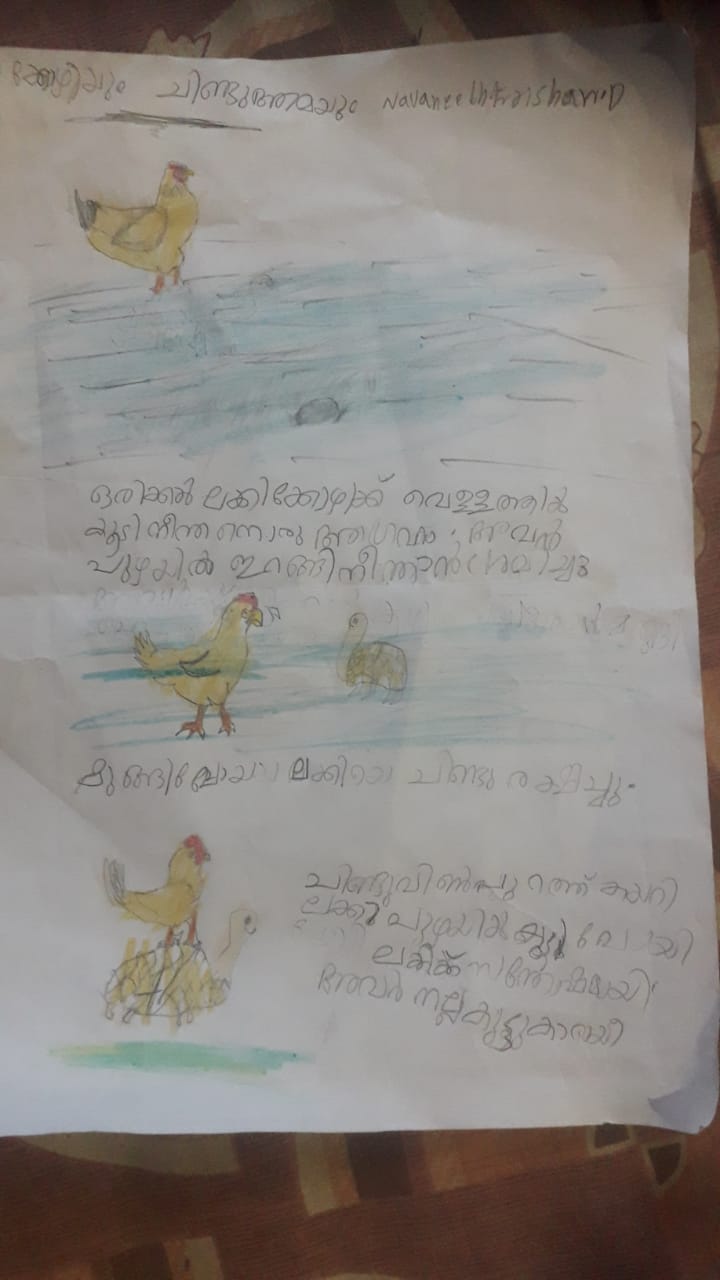 കോഴിയും ചിണ്ടുആമയും Navaneethkrishan.D
ഒരിക്കൽ ലക്കികോഴിക്ക് വെള്ളത്തിൽ
കൂടി നീന്തനൊരു ആഗ്രഹം. അവൻ
പുഴയിൽ ഇറങ്ങിനീന്താൻ ശ്രമിച്ചു
മുങ്ങിപ്പോയ ലക്കിയെ ചിണ്ടു രക്ഷിച്ചു.
ചിണ്ടുവിൺപുറത്ത് കയറി
ലക്കി പുഴയിൽ കൂടി പോയി
ലക്കിക്ക് സന്തോഷമായി
അവർ നല്ല കൂട്ടുകാരായി